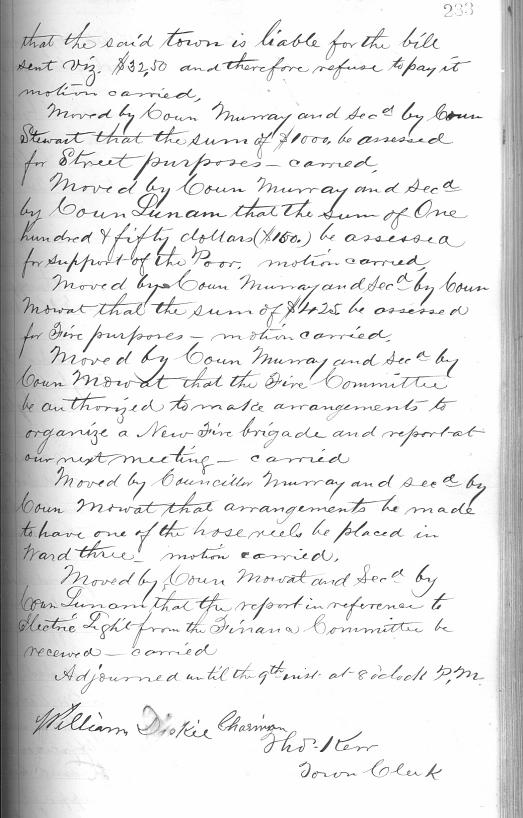 233
that the said town is liable for the bill
sent viz. $32,50 and therefore refuse to pay it
motion carried,
Moved by Coun Murray and Secd by Coun
Stewart that the sum of $1000, be assessed
for Street purposes – carried,
Moved by Coun Murray and Secd
by Coun Lunam that the sum of One
hundred & fifty dollars ($150.) be assessed
for support of the Poor, motion carried,
Moved by Coun Murray and Secd by Coun
Mowat that the sum of $425 be assessed
for Fire purposes – motion carried,
Moved by Coun Murray and Secd by
Coun Mowat that the Fire Committee
be authorized to make arrangements to
organize a New Fire brigade and report at
our next meeting – carried
Moved by Councillor Murray and secd by
Coun Mowat that arrangements be made
to have one of the hose reels be placed in
Ward three – motion carried,
Moved by Coun Mowat and Secd by
Coun Lunam that the report in reference to
Electric Light from the Finance Committee be
received – carried
Adjourned until the 9th inst at 8 oclock P,M.
William Dickie Chairman
Thos. Kerr
Town Clerk